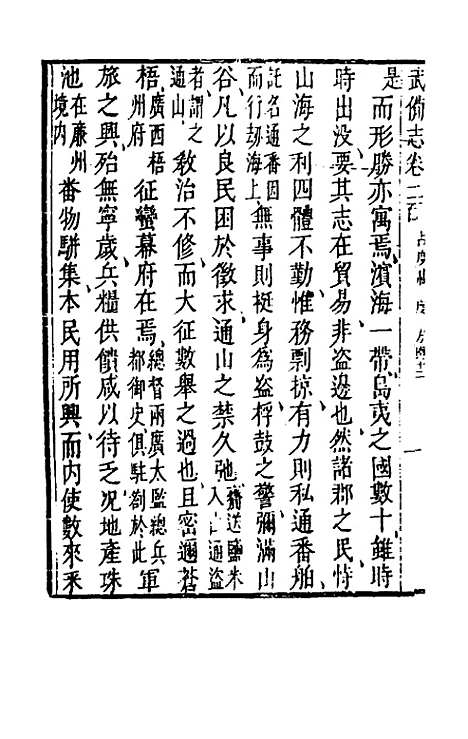 武備志卷二百 占度載 度
是而形勝亦寓焉濱海一帶島夷之國數十雖時
時出没要其志在貿易非盗邊也然諸郡之民恃
山海之利四體不勤惟務剽掠有力則私通番舶
託名通番因而行刼海上無事則挺身為盗桴鼓之警彌滿山
谷凡以良民困於徵求通山之禁久弛送鹽米入通盗
者謂之通山敎治不修而大征數舉之過也且密邇蒼
梧廣西梧州府征蠻幕府在焉總督兩廣太監總兵都御史俱駐劄於此軍
旅之興殆無寧歲兵糧供饋咸以待乏况地產珠
池在廉州境内番物駢集本民用所興而内使數來釆